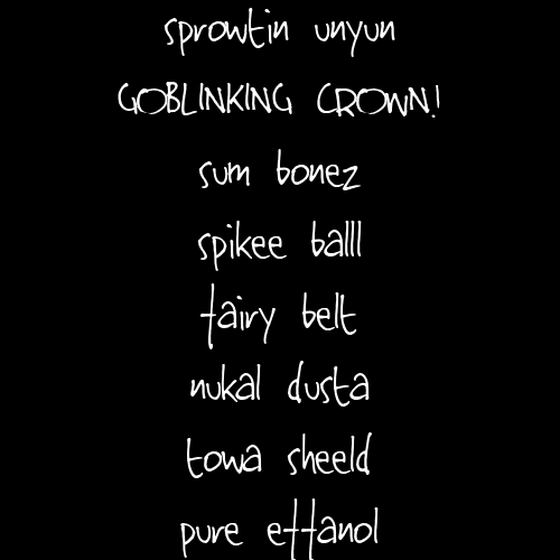 sprowtin unyun
GOBLINKING CROWN!
sum bonez
spikee balll
fairy belt
nukal dusta
towa sheeld
pure effanol